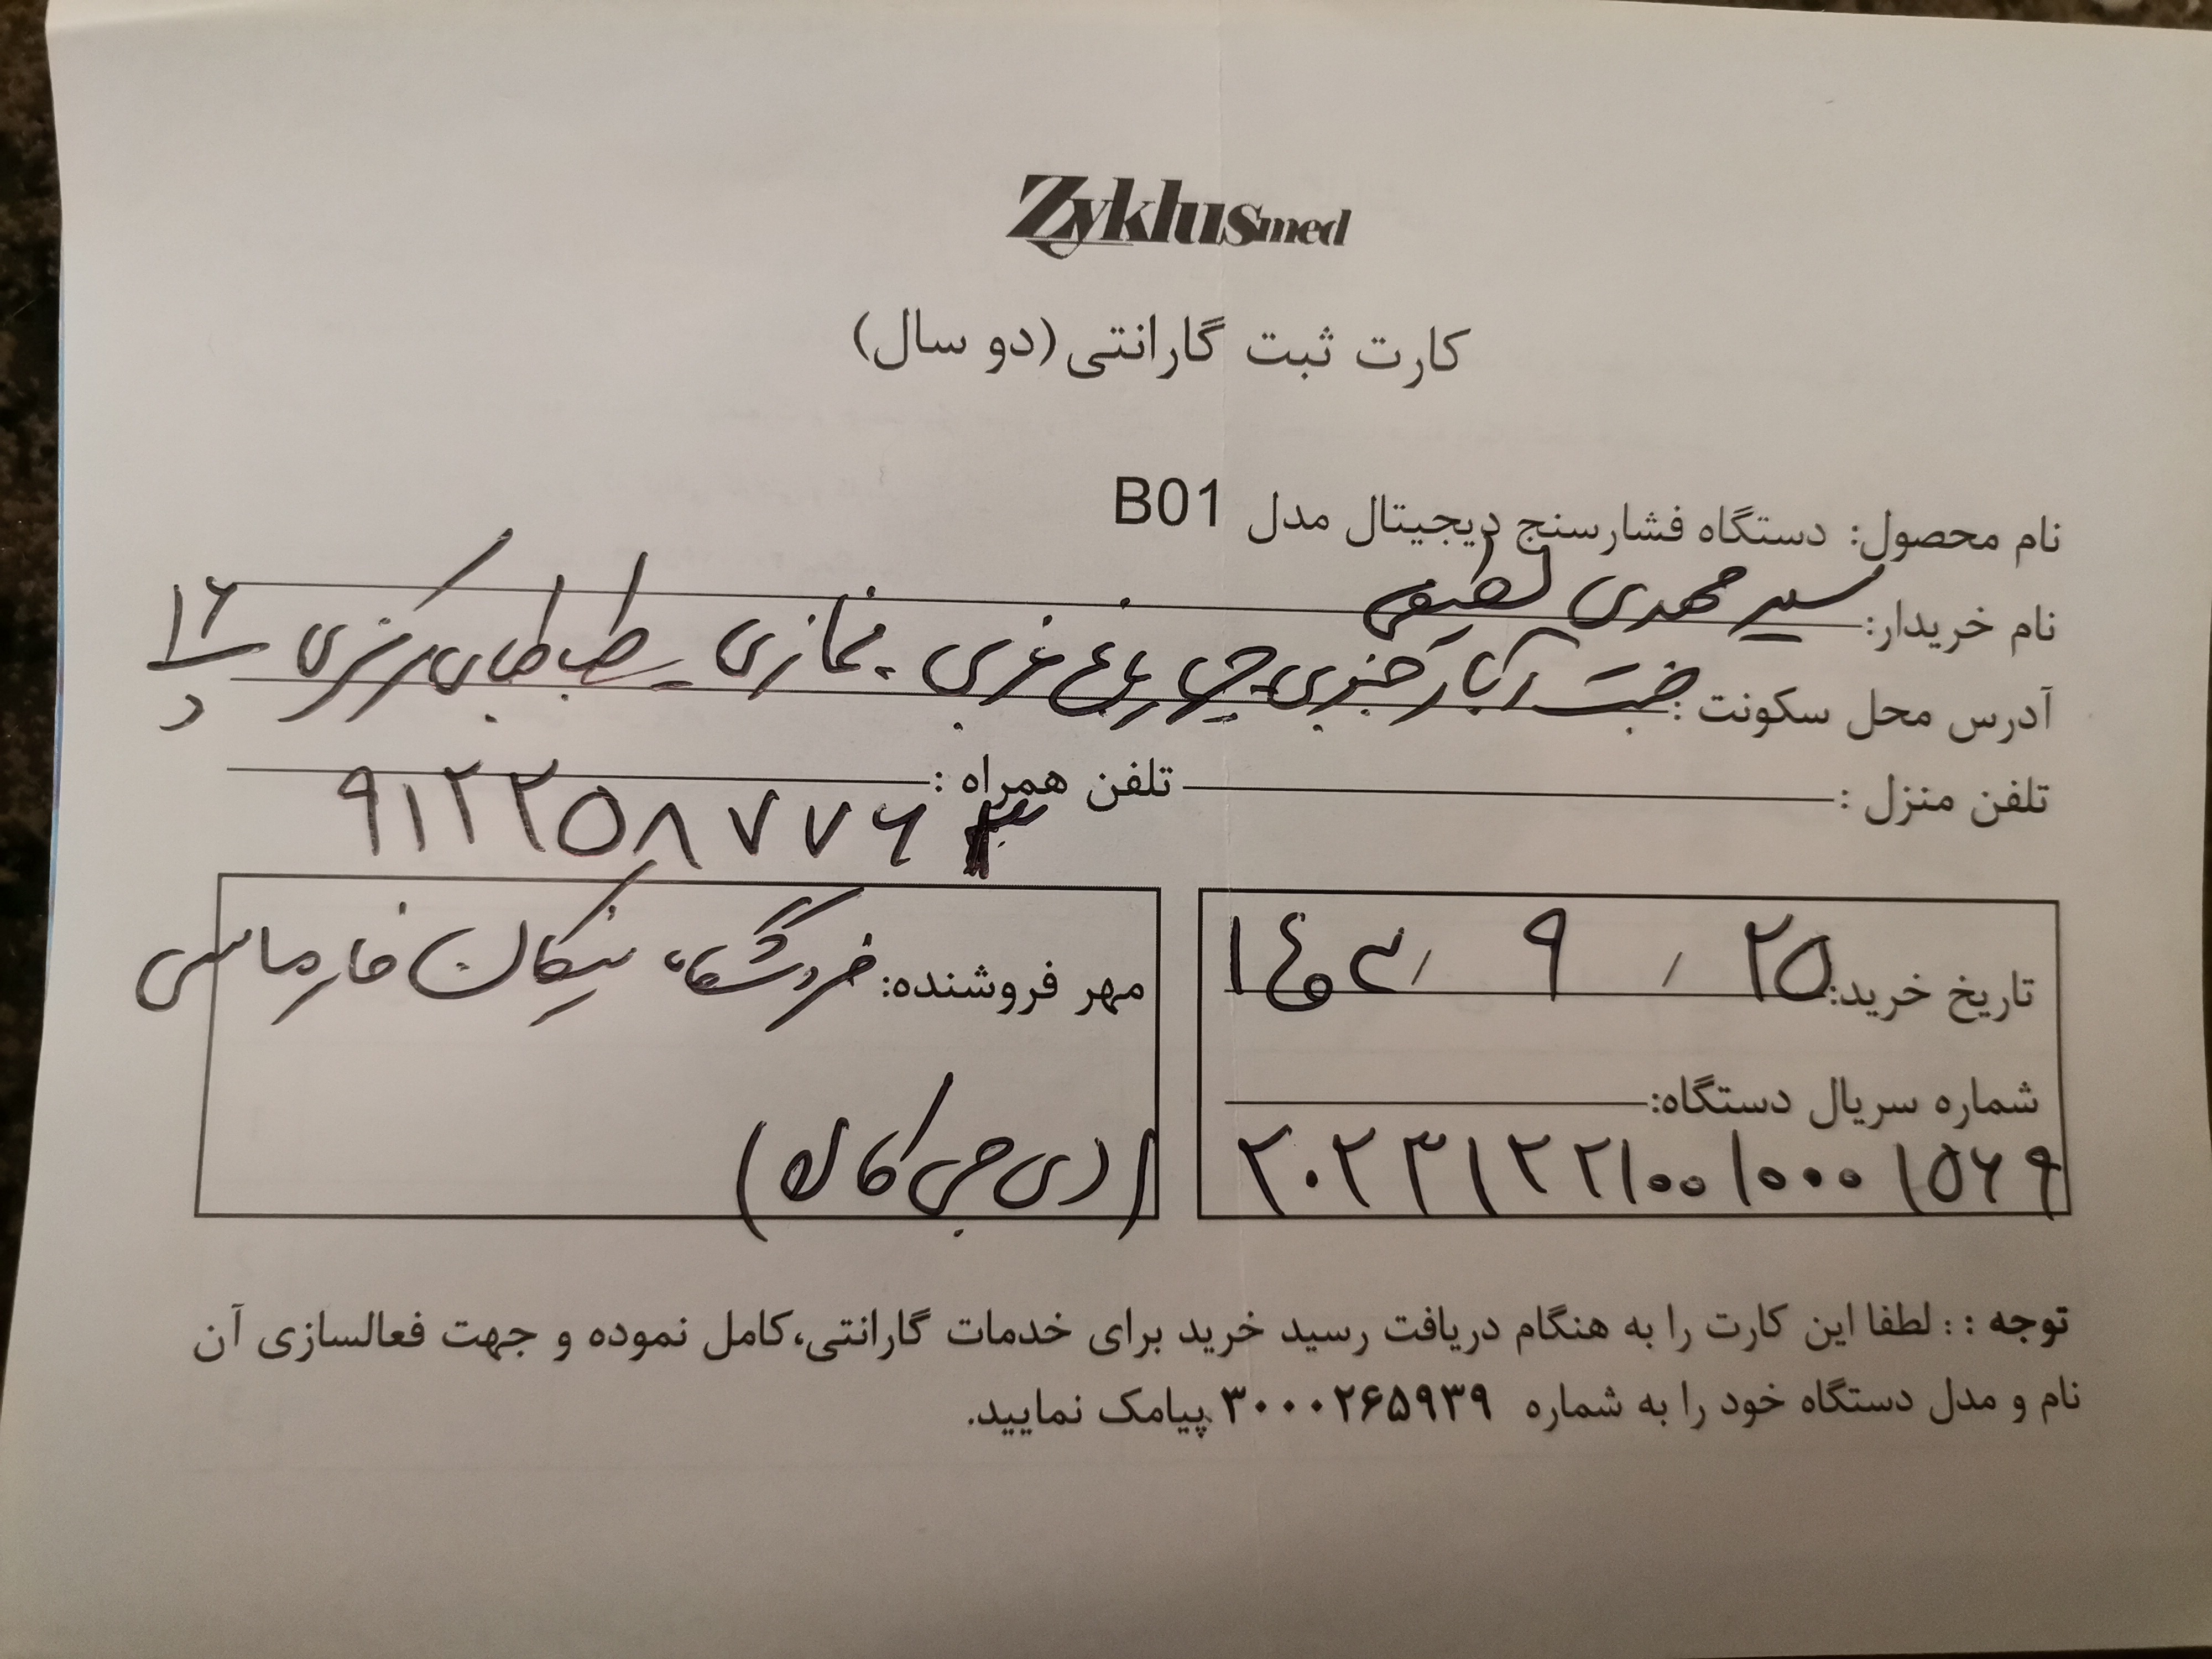 Zyklusmed
کارت ثبت گارانتی (دو سال)
نام محصول: دستگاه فشارسنج دیجیتال مدل B01
نام خریدار: سید مهدی لطیفی
آدرس محل سکونت: جنت آباد جنوبی - چهارباغ غربی - نمازی - طباطبایی مرکزی ۱۶
د
تلفن منزل : تلفن همراه :
۹۱۲۲۵۸۷۷۶
تاریخ خرید: ۲۵ / ۹ / ۱۴۰۳
مهر فروشنده: فروشگاه نیکان فارماسی
شماره سریال دستگاه:
۲۰۲۳۱۲۲۱۰۰۱۰۰۰۱۵۶۹
(دی جی کالا)
توجه : : لطفا این کارت را به هنگام دریافت رسید خرید برای خدمات گارانتی،کامل نموده و جهت فعالسازی آن
نام و مدل دستگاه خود را به شماره ۳۰۰۰۲۶۵۹۳۹ پیامک نمایید.